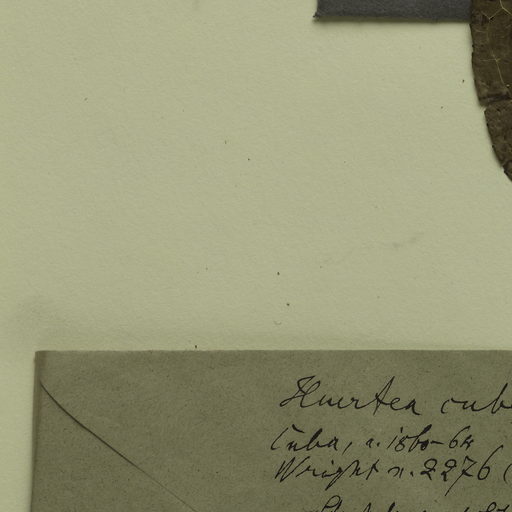 Huertea cub
Cuba, a. 1860-64
Wright n. 2276 (